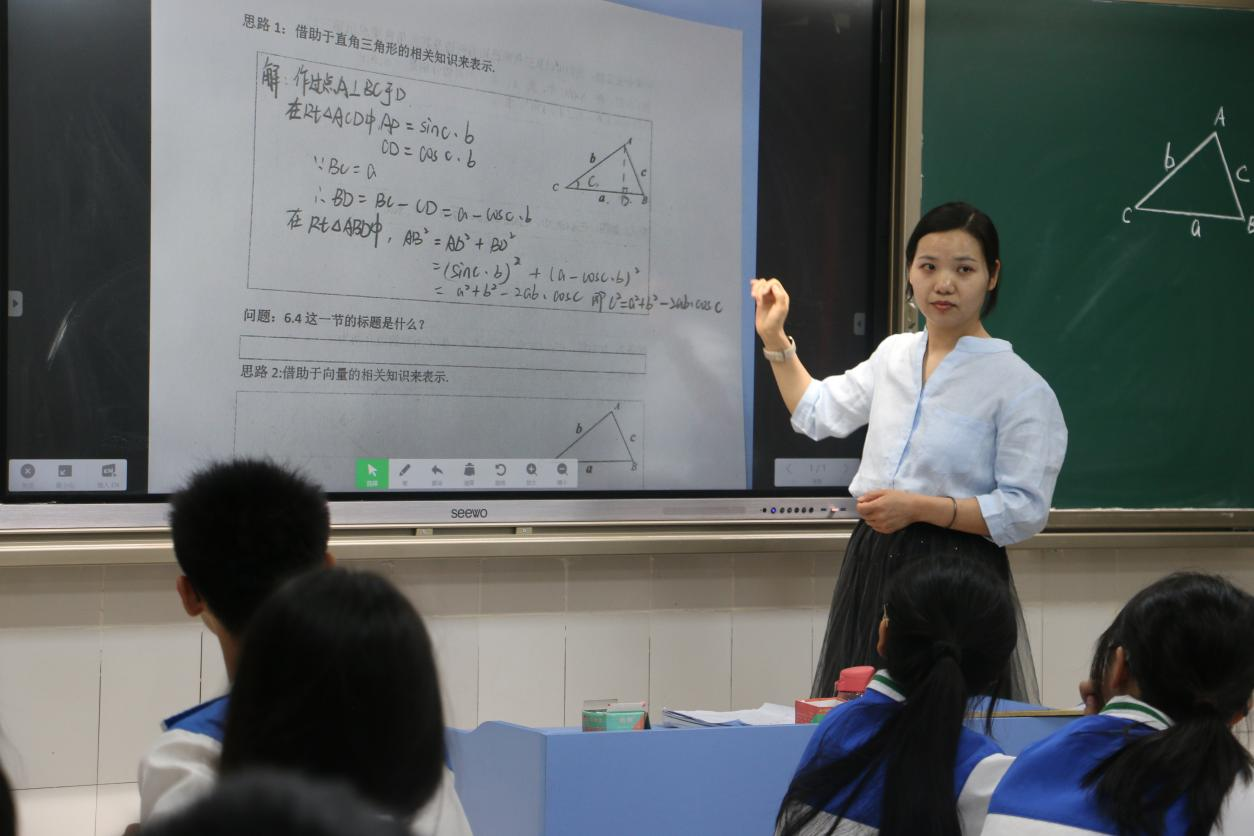 思路 1：借助于直角三角形的相关知识来表示.
解：作过点A⊥BC于D
在Rt△ACD中,AD = sinc·b
CD = cosc·b
∵BC = a
∴BD = BC - CD = a - cosc·b
在Rt△ABD中, AB² = AD² + BD²
= (sinc·b)² + (a - cosc·b)²
= a² + b² - 2ab·cosc 即c²=a²+b²-2ab·cosc
A
b
c
C
C
a
D
B
问题：6.4 这一节的标题是什么？
思路 2:借助于向量的相关知识来表示.
A
b
c
a
B
1/1
seewo
A
b
c
C
a
B